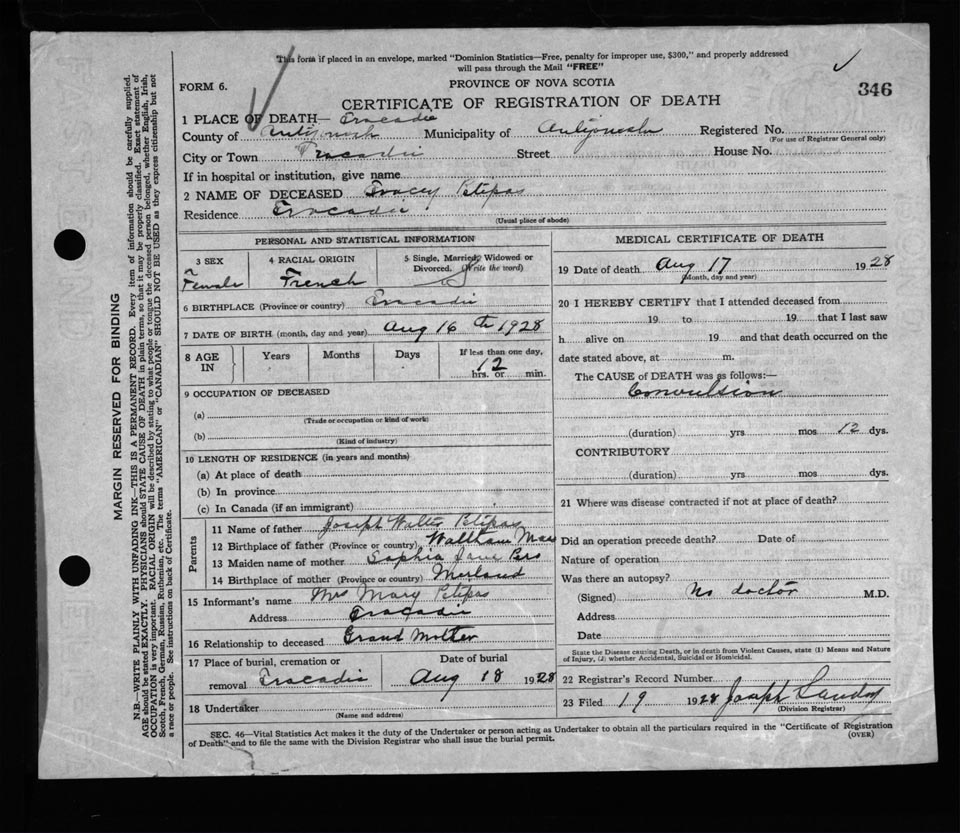 This form if placed in an envelope, marked "Dominion Statistics—Free, penalty for improper use, $300," and properly addressed
will pass through the Mail "FREE"
FORM 6.
PROVINCE OF NOVA SCOTIA
346
CERTIFICATE OF REGISTRATION OF DEATH
1 PLACE OF DEATH— Tracadie
County of Antigonish Municipality of Antigonish Registered No.
(For use of Registrar General only)
City or Town Tracadie Street House No.
If in hospital or institution, give name
2 NAME OF DECEASED Tracey Petipas
Residence Tracadie
(Usual place of abode)
PERSONAL AND STATISTICAL INFORMATION
3 SEX 4 RACIAL ORIGIN 5 Single, Married, Widowed or
Divorced. (Write the word)
Female French
6 BIRTHPLACE (Province or country) Tracadie
7 DATE OF BIRTH (month, day and year) Aug 16 th 1928
8 AGE IN Years Months Days If less than one day,
12
hrs. or min.
9 OCCUPATION OF DECEASED
(a)
(Trade or occupation or kind of work)
(b)
(Kind of industry)
10 LENGTH OF RESIDENCE (in years and months)
(a) At place of death
(b) In province
(c) In Canada (if an immigrant)
Parents
11 Name of father Joseph Walter Petipas
12 Birthplace of father (Province or country) Waltham Mass
13 Maiden name of mother Sophia Jane
14 Birthplace of mother (Province or country) Merland
15 Informant's name Mrs Mary Petipas
Address Tracadie
16 Relationship to deceased Grand Mother
17 Place of burial, cremation or Date of burial
removal Tracadie Aug 18 1928
18 Undertaker
(Name and address)
MEDICAL CERTIFICATE OF DEATH
19 Date of death Aug 17 1928
(Month, day and year)
20 I HEREBY CERTIFY that I attended deceased from
19 to 19 that I last saw
h alive on 19 and that death occurred on the
date stated above, at m.
The CAUSE of DEATH was as follows:—
Convulsion
(duration) yrs mos 12 dys.
CONTRIBUTORY
(duration) yrs mos dys.
21 Where was disease contracted if not at place of death?
Did an operation precede death? Date of
Nature of operation
Was there an autopsy?
(Signed) No doctor M.D.
Address
Date
State the Disease causing Death, or in death from Violent Causes, state (1) Means and Nature
of Injury, (2) whether Accidental, Suicidal or Homicidal.
22 Registrar's Record Number
23 Filed 19 1928 Joseph Landry
(Division Registrar)
SEC. 46—Vital Statistics Act makes it the duty of the Undertaker or person acting as Undertaker to obtain all the particulars required in the "Certificate of Registration
of Death" and to file the same with the Division Registrar who shall issue the burial permit.
(OVER)
MARGIN RESERVED FOR BINDING
N.B.—WRITE PLAINLY WITH UNFADING INK—THIS IS A PERMANENT RECORD. Every item of information should be carefully supplied.
AGE should be stated EXACTLY. PHYSICIANS should STATE CAUSE OF DEATH in plain terms, so that it may be properly classified. Exact statement of
OCCUPATION is very important. RACIAL ORIGIN will be described by stating to what people or tongue the deceased person belonged, whether English, Irish,
Scotch, French, German, Russian, Ruthenian, etc. The terms "AMERICAN" or "CANADIAN" SHOULD NOT BE USED as they express citizenship but not
a race or people. See instructions on back of Certificate.